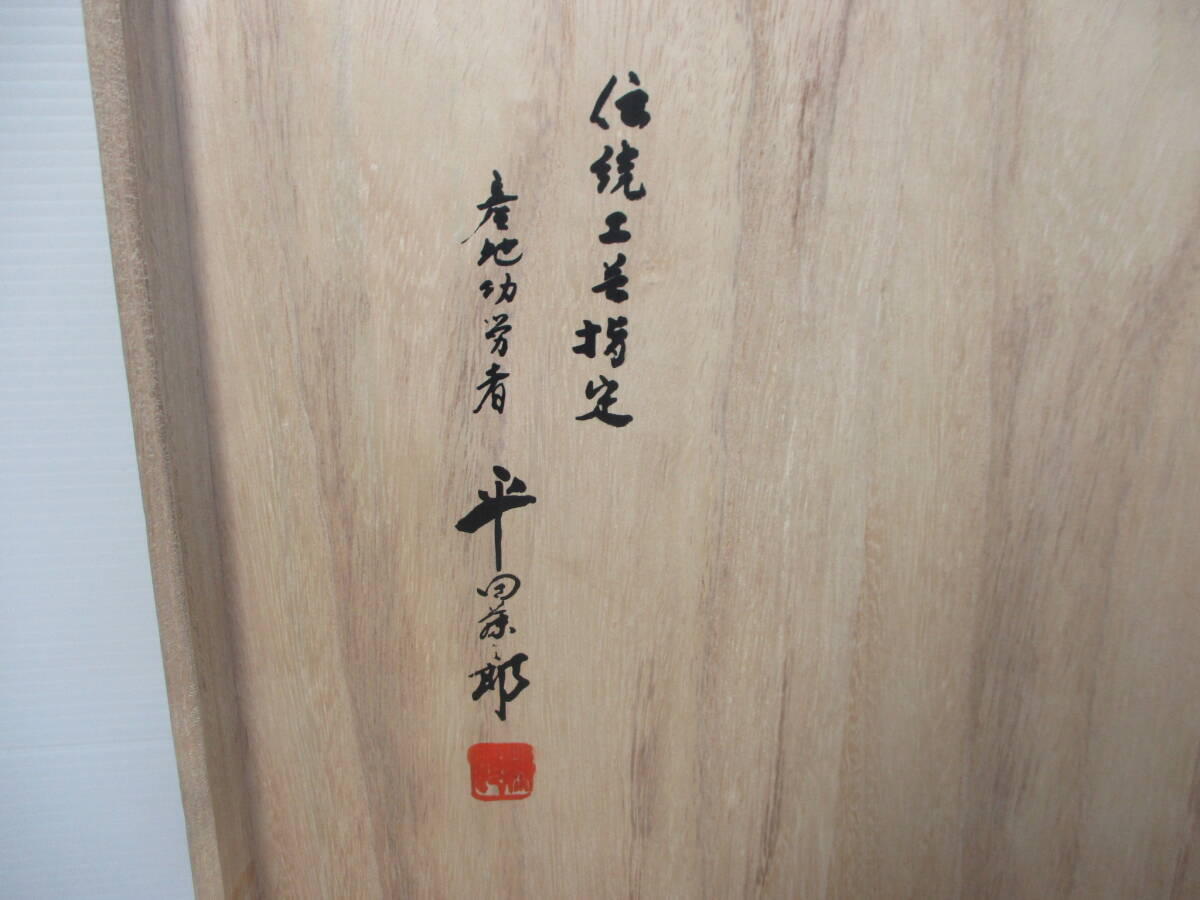 伝統工芸指定
産地功労者 平田茶郎